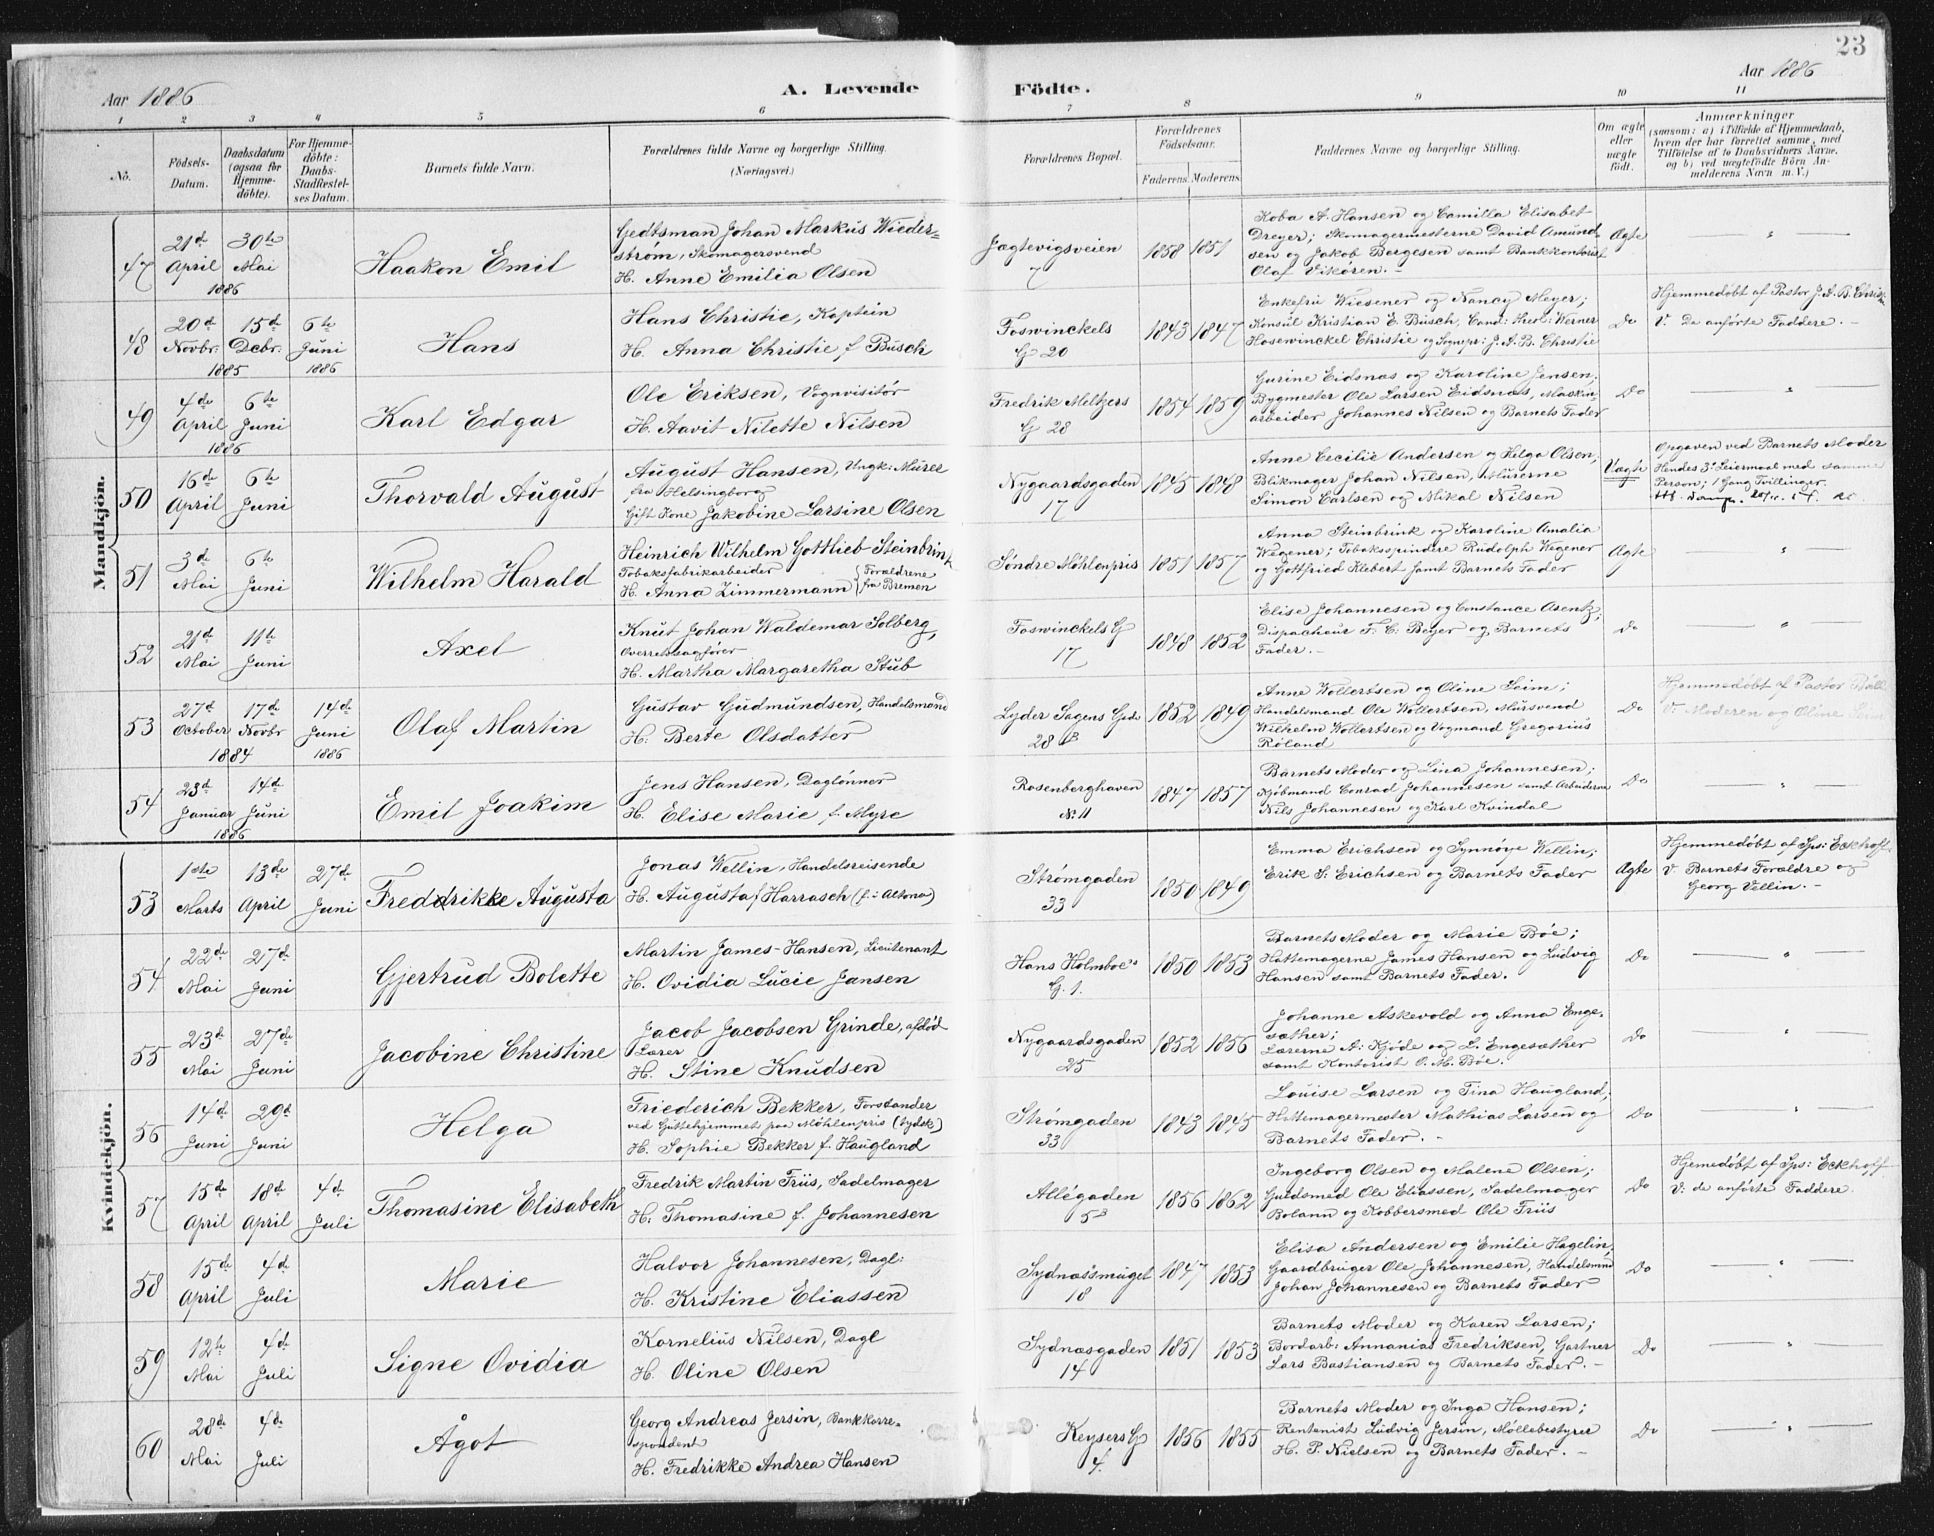 23
Aar 1886
A. Levende Födte.
Aar 1886
1 2 3 4 5 6 7 8 9 10 11
No.
Födsels-Datum.
Daabsdatum (ogsaa for Hjemmedöbte).
For Hjemmedöbte: Daabs-Stadfæstelses Datum.
Barnets fulde Navn.
Forældrenes fulde Navne og borgerlige Stilling.
(Næringsvei.)
Forældrenes Bopæl.
Forældrenes Födselsaar.
Faderens. Moderens.
Faddernes Navne og borgerlige Stilling.
Om ægte eller uægte födt.
Anmærkninger
(saasom: a) i Tilfælde af Hjemmedaab,
hvem der har forrettet samme, med
Tilföielse af to Daabsvidners Navne,
og b) ved uægtefödte Börn An-
melderens Navn m. V.)
Mandkjön.
47
21de April 30te Mai 1886
Haakon Emil
Gedtsman Johan Markus Wieder=
strøm, Skomagersvend
H. Anne Emilia Olsen
Jægtevigsveien
7
1858 1851
Koba A. Hansen og Camilla Elisabet
Dreyer; Skomagermesterne David Amund-
sen og Jakob Bergesen samt Bankkontorist
Olaf Vikøren. -
Ægte
48
20de Novbr. 15de Debr. 1885
6te Juni 1886
Hans
Hans Christie, Kaptein
H. Anna Christie, f. Busch
Foswinckels
G 20
1843 1847
Enkefru Wiesener og Nancy Meyer;
Konsul Kristian E. Busch, Cand: theol: Werner
Hosewinckel Christie og Sognepr: J. A. B. Christie
Do
Hjemmedöbt af Pastor J. A. B. Christie
V. De anførte Faddere. -
49
4de April 6te Juni 1886
Karl Edgar
Ole Eriksen, Vognvisitør
H. Aavit Nilette Nilsen
Fredrik Meltzers
G 28
1854 1859
Gurine Eidsnæs og Karoline Jensen;
Bygmester Ole Larsen Eidsnæs, Maskin-
arbeider Johannes Nilsen og Barnets Fader
Do
50
16de April 6te Juni
Thorvald August
August Hansen, Ungk: Murer
fra Helsingborg
Gift Kone Jakobine Larsine Olsen
Nygaardsgaden
17
1845 1848
Anne Cecilie Andersen og Helga Olsen;
Blikmager Johan Nilsen, Murerne
Simon Carlsen og Mikal Nilsen
Uægte
Opgaven ved Barnets Moder
Hendes 3die Leiermaal med samme
Person; 1 Gang Tvillinger.
51
3de Mai 6te Juni
Wilhelm Harald
Heinrich Wilhelm Gottlieb Steinbrink
Tobaksfabrikarbeider
H. Anna Zimmermann (Forældrene fra Bremen
Søndre Møhlenpris
1851 1857
Anna Steinbrink og Karoline Amalia
Wegener; Tobaksspindere Rudolph Wegener
og Gottfried Klebert samt Barnets Fader
Ægte
52
21de Mai 11te Juni
Axel
Knut Johan Waldemar Solberg,
Overretssagfører
H. Martha Margaretha Stub
Foswinckels G
17
1848 1852
Elise Johannesen og Constance Asentz;
Dispacheur F. C. Beyer og Barnets
Fader. -
Do
53
27d October 17de Novbr 1884
14de Juni 1886
Olaf Martin
Gustav Gudmundsen, Handelsmand
H. Berte Olsdatter
Lyder Sagens Gade
28 B
1852 1849
Anne Wollertsen og Oline Seim;
Handelsmand Ole Wollertsen, Mursvend
Wilhelm Wollertsen og Vogmand Gregorius
Røland
Do
Hjemmedöbt af Pastor
V. Moderen og Oline Seim
54
23d Januar 14de Juni 1886
Emil Joakim
Jens Hansen, Daglønner
H. Elise Marie f. Myre
Rosenberghaven
No 11
1847 1857
Barnets Moder og Lina Johannesen;
Kjøbmand Conrad Johannesen samt Arbeiderne
Nils Johannesen og Karl Kvindal
Do
Kvindekjön.
53
1ste Marts 13de April 27de Juni
Freddrikke Augusta
Jonas Wellin, Handelsreisende
H. Augusta f Harrasch (f. i Altona)
Strømgaden
33
1850 1849
Emma Erichsen og Synnøve Wellin;
Erik S. Erichsen og Barnets Fader
Ægte
Hjemmedöbt af Sps: Eckhoff
V. Barnets Forældre og
Georg Vellin. -
54
22de Mai 27de Juni
Gjertrud Bolette
Martin James-Hansen, Lieutenant
H. Ovidia Lucie Jansen
Hans Holmboe's
G. 1.
1850 1853
Barnets Moder og Marie Bøe;
Hattemagerne James Hansen og Ludvig
Hansen samt Barnets Fader.
Do
55
23de Mai 27de Juni
Jacobine Christine
Jacob Jacobsen Grinde, afdød
Lærer
H. Stine Knudsen
Nygaardsgaden
25
1852 1856
Johanne Askevold og Anna Enge-
sæther;
Lærerne A. Kjøde og L. Engesæther
samt Kontorist O. M. Bøe.
Do
56
14de Juni 29d Juni
Helga
Friederich Bekker, Forstander
ved Guttehjemmet paa Møhlenpris (tydsk)
H. Sophie Bekker f. Haugland
Strømgaden
33
1843 1845
Louise Larsen og Tina Haugland;
Hattemagermester Mathias Larsen og
Barnets Fader. -
Do
57
15de April 18de April 4de Juli
Thomasine Elisabeth
Fredrik Martin Friis, Sadelmager
H. Thomasine f. Johannesen
Allégaden
5B
1856 1862
Ingeborg Olsen og Malene Olsen;
Guldsmed Ole Eliassen, Sadelmager
Bolann og Kobbersmed Ole Friis
Do
Hjemedöbt af Sps: Eckhoff
V: de anførte Faddere.
58
15de April 4de Juli
Marie
Halvor Johannesen, Dagl:
H. Kristine Eliassen
Sydnæssmuget
18
1847 1853
Elisa Andersen og Emilie Hagelin;
Gaardbruger Ole Johannesen, Handelsmnd
Johan Johannesen og Barnets Fader
Do
59
12te Mai 4de Juli
Signe Ovidia
Kornelius Nilsen, Dagl
H. Oline Olsen
Sydnæsgaden
14
1851 1853
Barnets Moder og Karen Larsen;
Bordarb: Annanias Fredriksen, Gartner
Lars Bastiansen og Barnets Fader. -
Do
60
28de Mai 4de Juli
Ågot
Georg Andreas Jersin, Bankkorre=
spondent
H. Fredrikke Andrea Hansen
Keysers G
4.
1856 1855
Barnets Moder og Inga Hansen;
Rentenist Ludvig Jersin, Møllebestyrer
H. P. Nielsen og Barnets Fader. -
Do